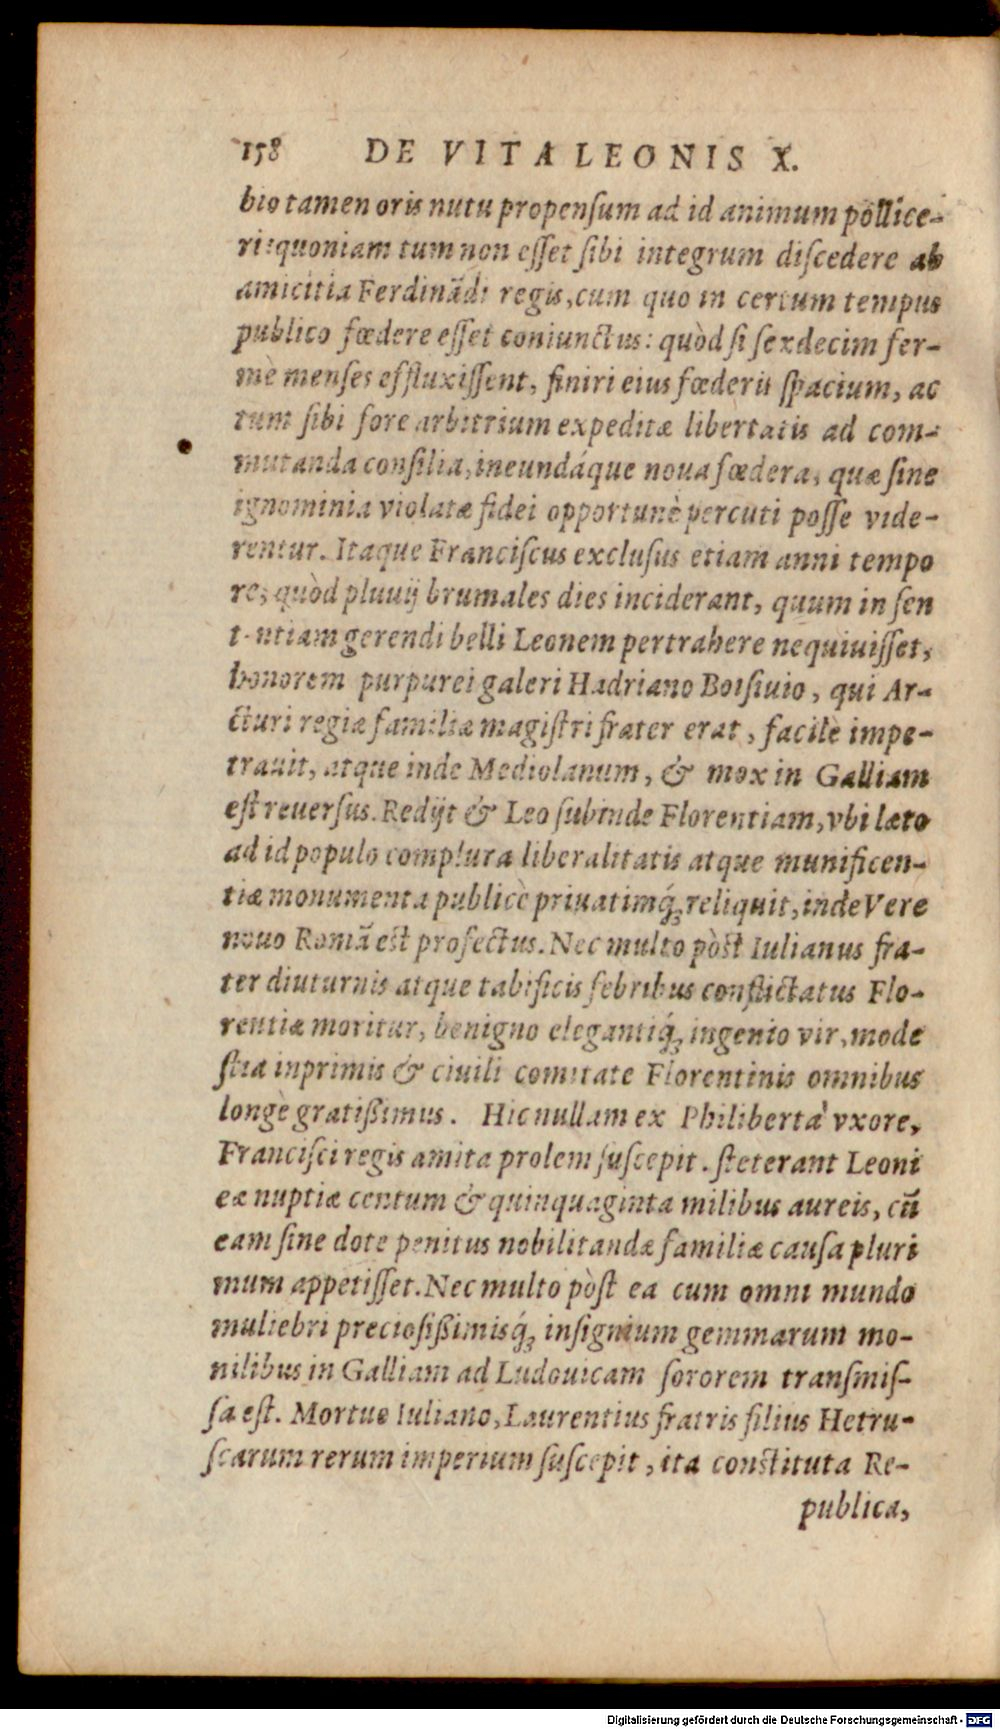 158 DE VITA LEONIS X.
bio tamen oris nutu propenſum ad id animum pollice-
ri: quoniam tum non eſſet ſibi integrum diſcedere ab
amicitia Ferdinādi regis, cum quo in certum tempus
publico fœdere eſſet coniunctus: quòd ſi ſexdecim fer-
mè menſes effluxiſſent, finiri eius fœderis ſpacium, ac
tum ſibi fore arbitrium expeditæ libertatis ad com-
mutanda conſilia, ineundáque noua fœdera, quæ ſine
ignominia violatæ fidei opportunè percuti poſſe vide-
rentur. Itaque Franciſcus excluſus etiam anni tempo
re, quòd pluuij brumales dies inciderant, quum in ſen
t-ntiam gerendi belli Leonem pertrahere nequiuiſſet,
honorem purpurei galeri Hadriano Boiſiuio, qui Ar-
cturi regiæ familiæ magiſtri frater erat, facilè impe-
trauit, atque inde Mediolanum, & mox in Galliam
eſt reuerſus. Redijt & Leo ſubinde Florentiam, vbi læto
ad id populo complura liberalitatis atque munificen-
tiæ monumenta publicè priuatimq́; reliquit, inde Vere
nouo Romā eſt profectus. Nec multo pòſt Iulianus fra-
ter diuturnis atque tabificis febribus conflictatus Flo-
rentiæ moritur, benigno elegantiq́; ingenio vir, mode
ſtia inprimis & ciuili comitate Florentinis omnibus
longè gratißimus. Hic nullam ex Philiberta vxore,
Franciſci regis amita prolem ſuſcepit. ſteterant Leoni
eæ nuptiæ centum & quinquaginta milibus aureis, cū
eam ſine dote penitus nobilitandæ familiæ cauſa pluri
mum appetiſſet. Nec multo pòſt ea cum omni mundo
muliebri precioſißimisq́; inſignium gemmarum mo-
nilibus in Galliam ad Ludouicam ſororem tranſmiſ-
ſa eſt. Mortuo Iuliano, Laurentius fratris filius Hetru-
ſcarum rerum imperium ſuſcepit, ita conſtituta Re-
publica,
Digitalisierung gefördert durch die Deutsche Forschungsgemeinschaft - DFG